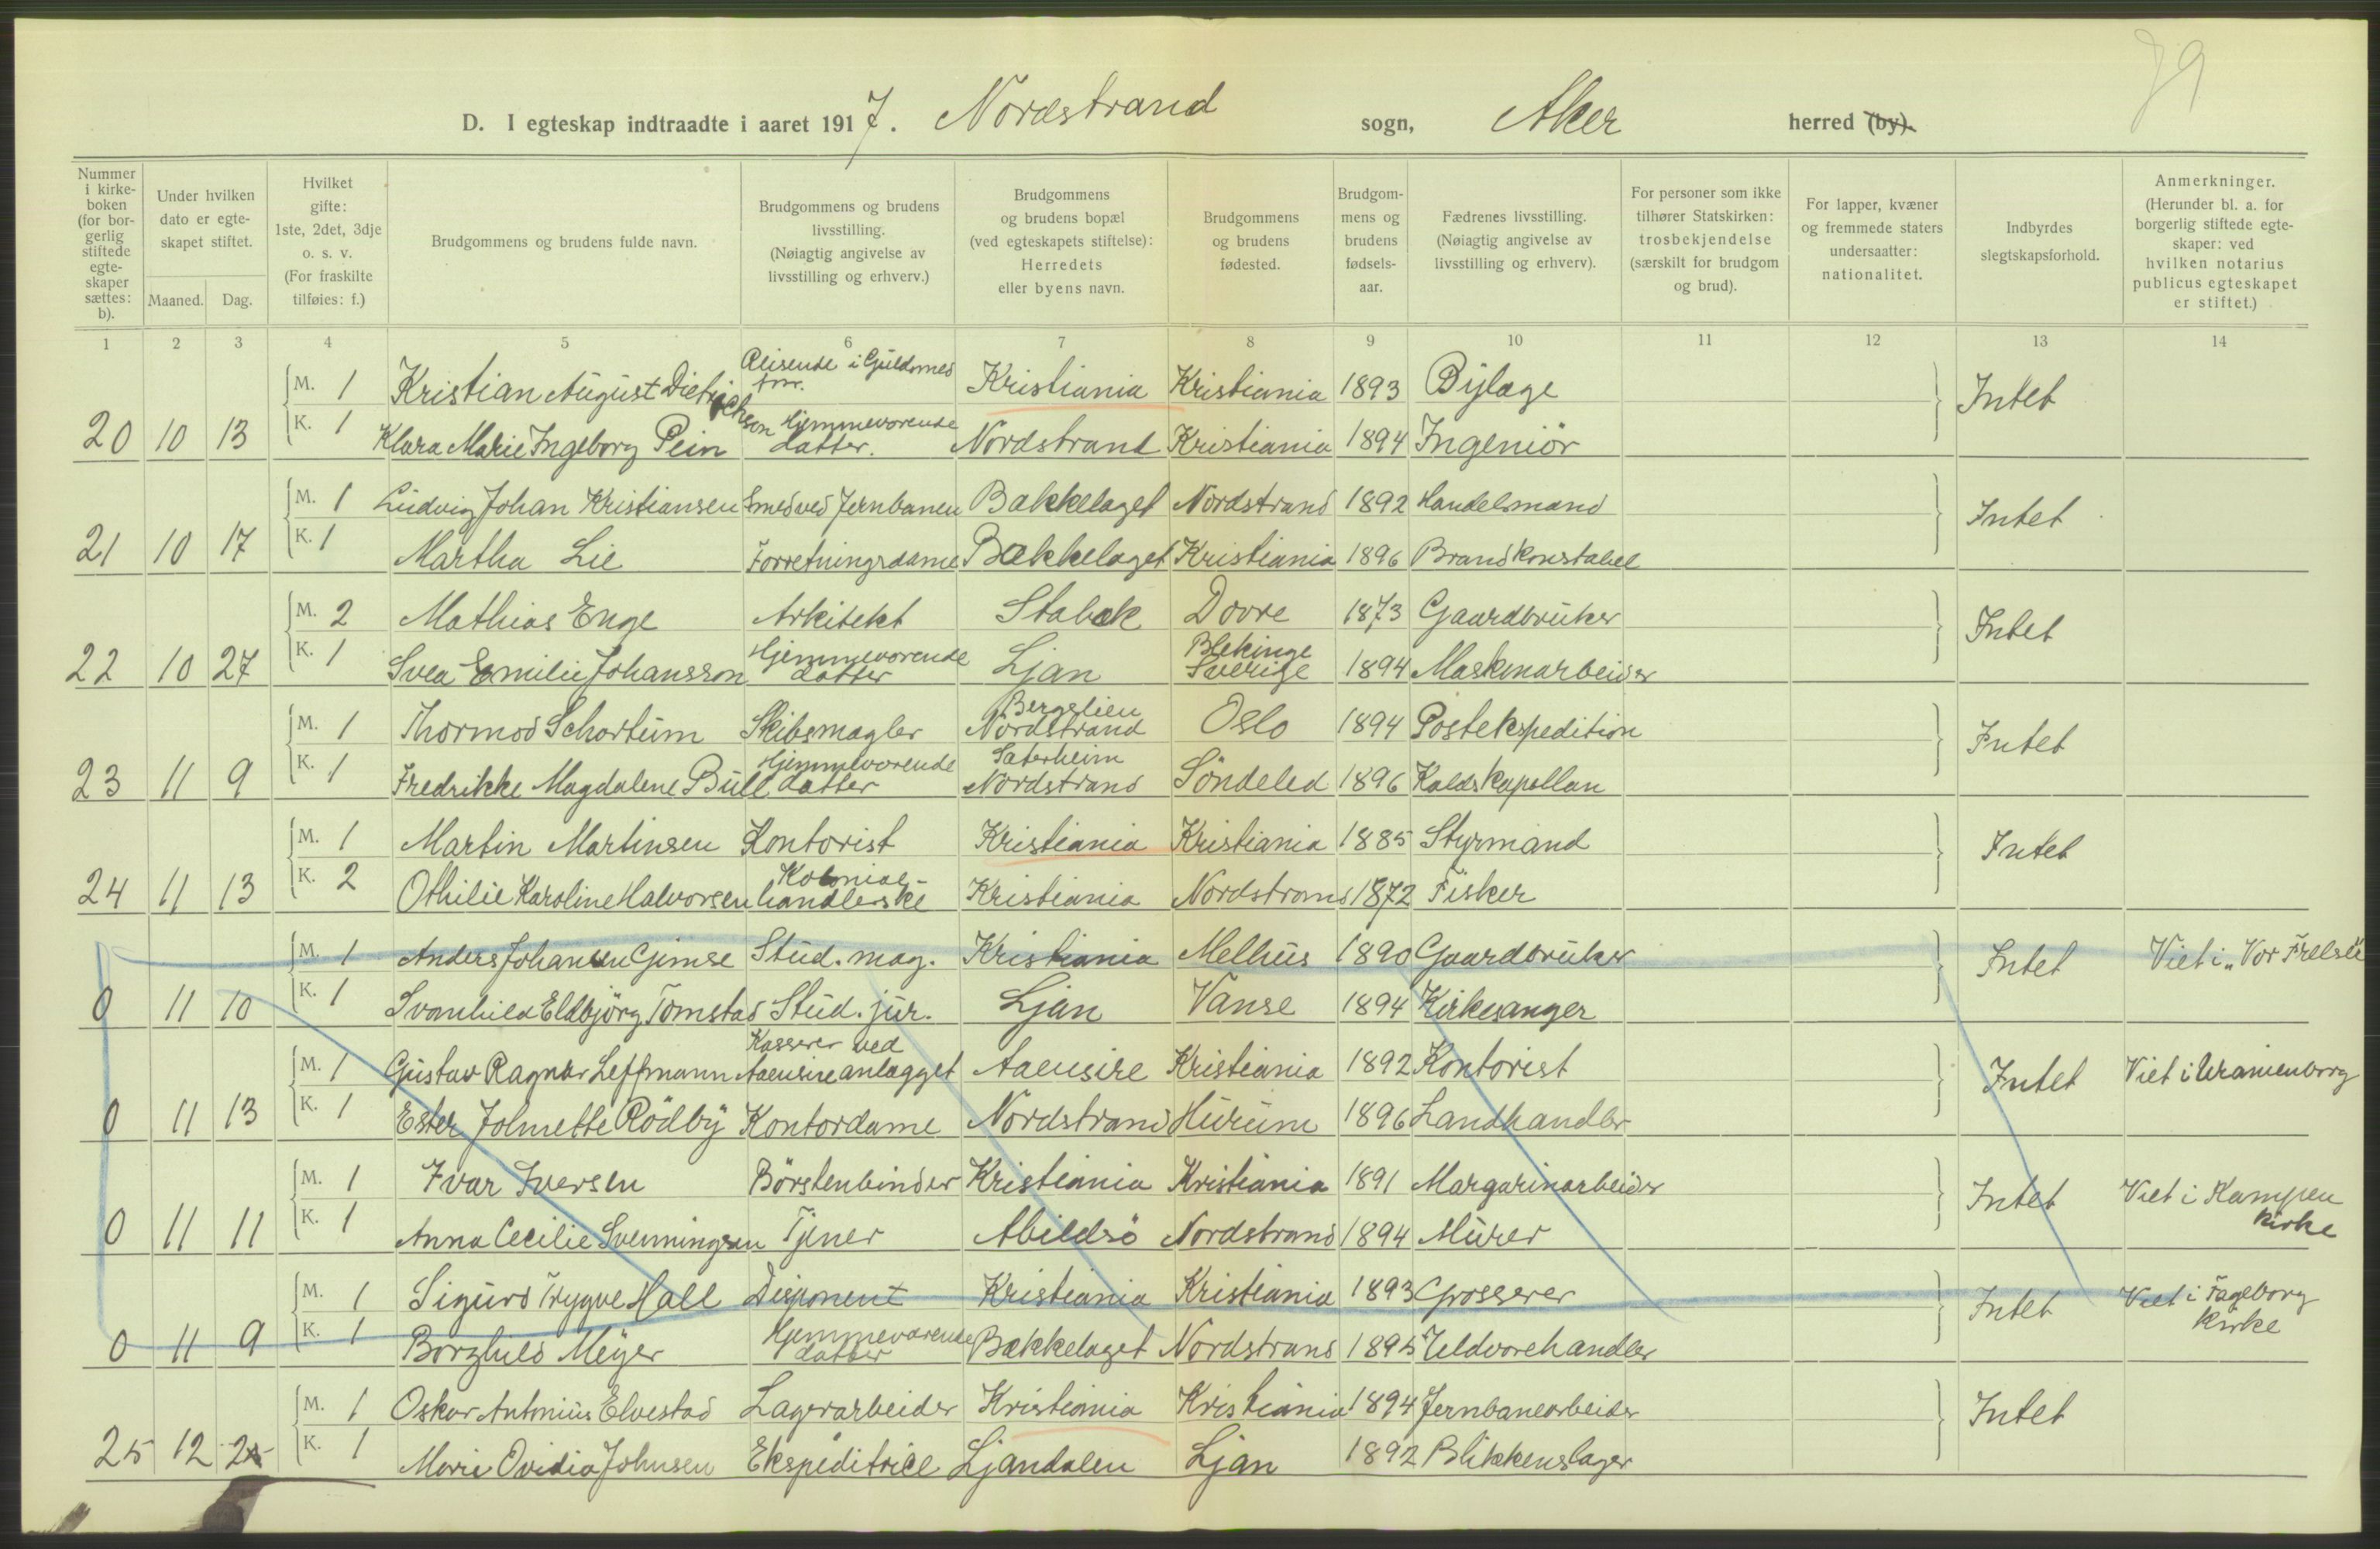 79
D. I egteskap indtraadte i aaret 1917. Nordstrand sogn, Aker herred (by).
Nummer i kirke-boken (for bor-gerlig stiftede egte-skaper sættes: b).
Under hvilken dato er egte-skapet stiftet.
Maaned. Dag.
Hvilket gifte: 1ste, 2det, 3dje o. s. v. (For fraskilte tilføies: f.)
Brudgommens og brudens fulde navn.
Brudgommens og brudens livsstilling. (Nøiagtig angivelse av livsstilling og erhverv.)
Brudgommens og brudens bopæl (ved egteskapets stiftelse): Herredets eller byens navn.
Brudgommens og brudens fødested.
Brudgom-mens og brudens fødsels-aar.
Fædrenes livsstilling. (Nøiagtig angivelse av livsstilling og erhverv).
For personer som ikke tilhører Statskirken: trosbekjendelse (særskilt for brudgom og brud).
For lapper, kvæner og fremmede staters undersaatter: nationalitet.
Indbyrdes slegtskapsforhold.
Anmerkninger. (Herunder bl. a. for borgerlig stiftede egte-skaper: ved hvilken notarius publicus egteskapet er stiftet.)
1 2 3 4 5 6 7 8 9 10 11 12 13 14
M. 1 Kristian August Dietrichson Reisende i Guldsmed Kristiania Kristiania 1893 Intet
20 10 13 K. 1 Klara Marie Ingeborg Pein Hjemmeværende datter. Nordstrand Kristiania 1894 Ingeniör
M. 1 Ludvig Johan Kristiansen Smed ved Jernbanen Bækkelaget Nordstrand 1892 Handelsmand Intet
21 10 17 K. 1 Martha Lie Forretningsdame Bækkelaget Kristiania 1896 Brandkonstabel
M. 2 Mathias Enge Arkitekt Stabæk Dovre 1873 Gaardbruker Intet
22 10 27 K. 1 Svea Emilie Johansson Hjemmeværende datter Ljan Blekinge Sverige 1894 Maskinarbeider
M. 1 Thormod Schartum Skibsmægler Bergslien Nordstrand Oslo 1894 Postekspedition Intet
23 11 9 K. 1 Fredrikke Magdalene Bull Hjemmeværende datter Sæterheim Nordstrand Söndeled 1896 Kaldskapellan
M. 1 Martin Martinsen Kontorist Kristiania Kristiania 1885 Styrmand Intet
24 11 13 K. 2 Othilie Karoline Halvorsen Kolonial-handlerske Kristiania Nordstrand 1872 Fisker
M. 1 Anders Johansen Gimse Stud. mag. Kristiania Melhus 1890 Gaardbruker Intet Viet i „Vor Frelser
0 11 10 K. 1 Svanhild Eldbjörg Tomstad Stud. jur. Ljan Vanse 1894 Kirkesanger
M. 1 Gustav Ragnar Leffmann Kasserer ved Aaensireanlægget Aaensire Kristiania 1892 Kontorist Intet Viet i Uranienborg
0 11 13 K. 1 Ester Johnette Rödby Kontordame Nordstrand Hurum 1896 Landhandler
M. 1 Ivar Iversen Börstenbinder Kristiania Kristiania 1891 Margarinarbeider Intet Viet i Kampen Kirke
0 11 11 K. 1 Anna Cecilie Svenningsen Tjener Abildsö Nordstrand 1894 Murer
M. 1 Sigurd Trygve Hall Disponent Kristiania Kristiania 1893 Grosserer Intet Viet i Fageborg Kirke
0 11 9 K. 1 Borghild Meyer Hjemmeværende datter Bækkelaget Nordstrand 1895 Uldvarehandler
M. 1 Oskar Antonius Elvestad Lagerarbeider Kristiania Kristiania 1894 Jernbanearbeider Intet
25 12 K. 1 Marie Ovidia Johnsen Ekspeditrice Ljandalen Ljan 1892 Blikkenslager